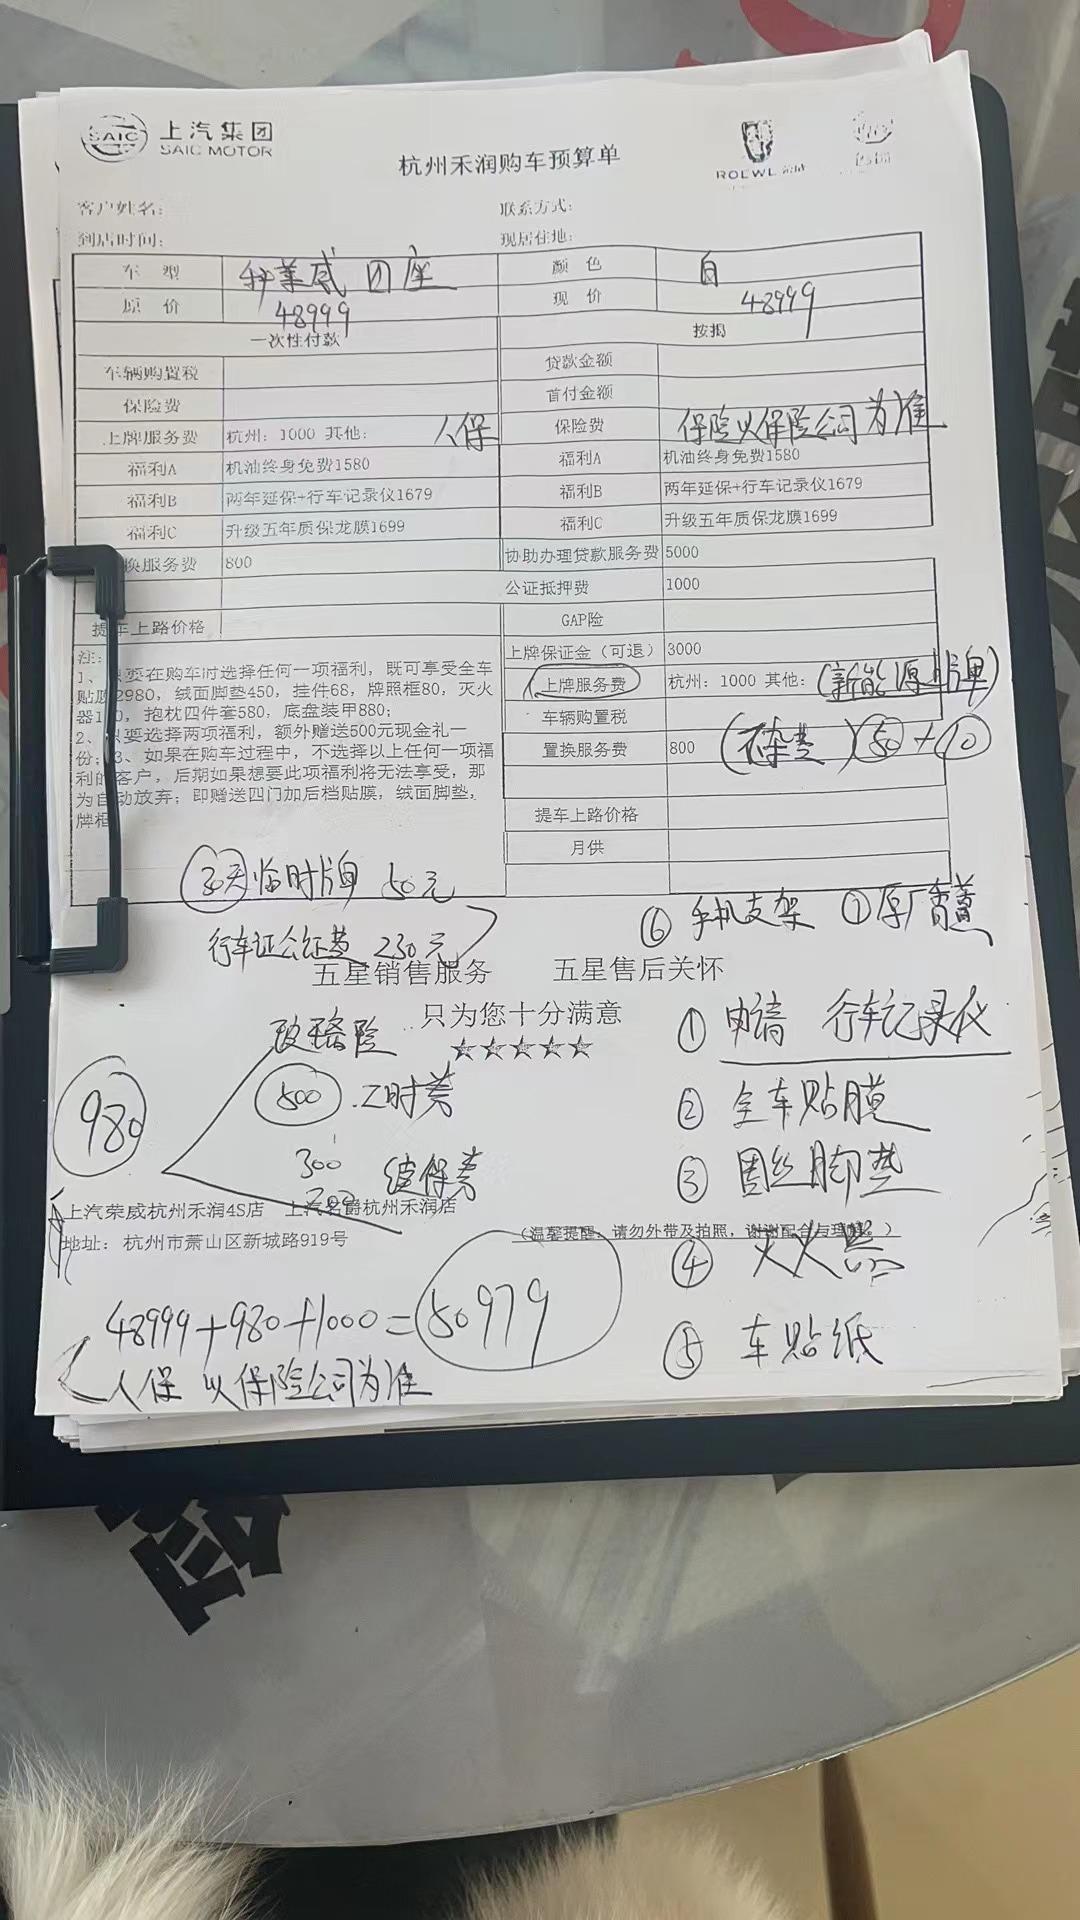 SAIC 上汽集团
SAIC MOTOR
杭州禾润购车预算单
ROEWE 荣威
客户姓名: 联系方式:
到店时间: 现居住地:
车 型 科莱威 四座 颜 色 白
原 价 48999 现 价 48999
一次性付款 按揭
车辆购置税 贷款金额
保险费 首付金额
上牌服务费 杭州: 1000 其他: 人保 保险费 保险以保险公司为准
福利A 机油终身免费1580 福利A 机油终身免费1580
福利B 两年延保+行车记录仪1679 福利B 两年延保+行车记录仪1679
福利C 升级五年质保龙膜1699 福利C 升级五年质保龙膜1699
换服务费 800 协助办理贷款服务费 5000
公证抵押费 1000
提车上路价格 GAP险
上牌保证金（可退） 3000
上牌服务费 杭州: 1000 其他: (新能源牌)
车辆购置税
置换服务费 800 50+10
提车上路价格
月供
注:
1、只要在购车时选择任何一项福利，既可享受全车
贴膜2980，绒面脚垫450，挂件68，牌照框80，灭火
器1 0，抱枕四件套580，底盘装甲880;
2、只要选择两项福利，额外赠送500元现金礼一
份; 3、如果在购车过程中，不选择以上任何一项福
利的客户，后期如果想要此项福利将无法享受，那
为自动放弃；即赠送四门加后档贴膜，绒面脚垫，
牌框
30天临时牌 50元
行车证公证费 230元
⑥ 手机支架 ⑦ 原厂香薰
五星销售服务 五星售后关怀
只为您十分满意
☆☆☆☆☆
玻璃险
500 工时费
300 续保费
980
① 申请 行车记录仪
② 全车贴膜
③ 圈丝脚垫
④ 灭火器
⑤ 车贴纸
上汽荣威杭州禾润4S店 上汽名爵杭州禾润店
地址: 杭州市萧山区新城路919号
（温馨提醒: 请勿外带及拍照，谢谢配合与理解。）
48999+980+1000=50979
人保 以保险公司为准